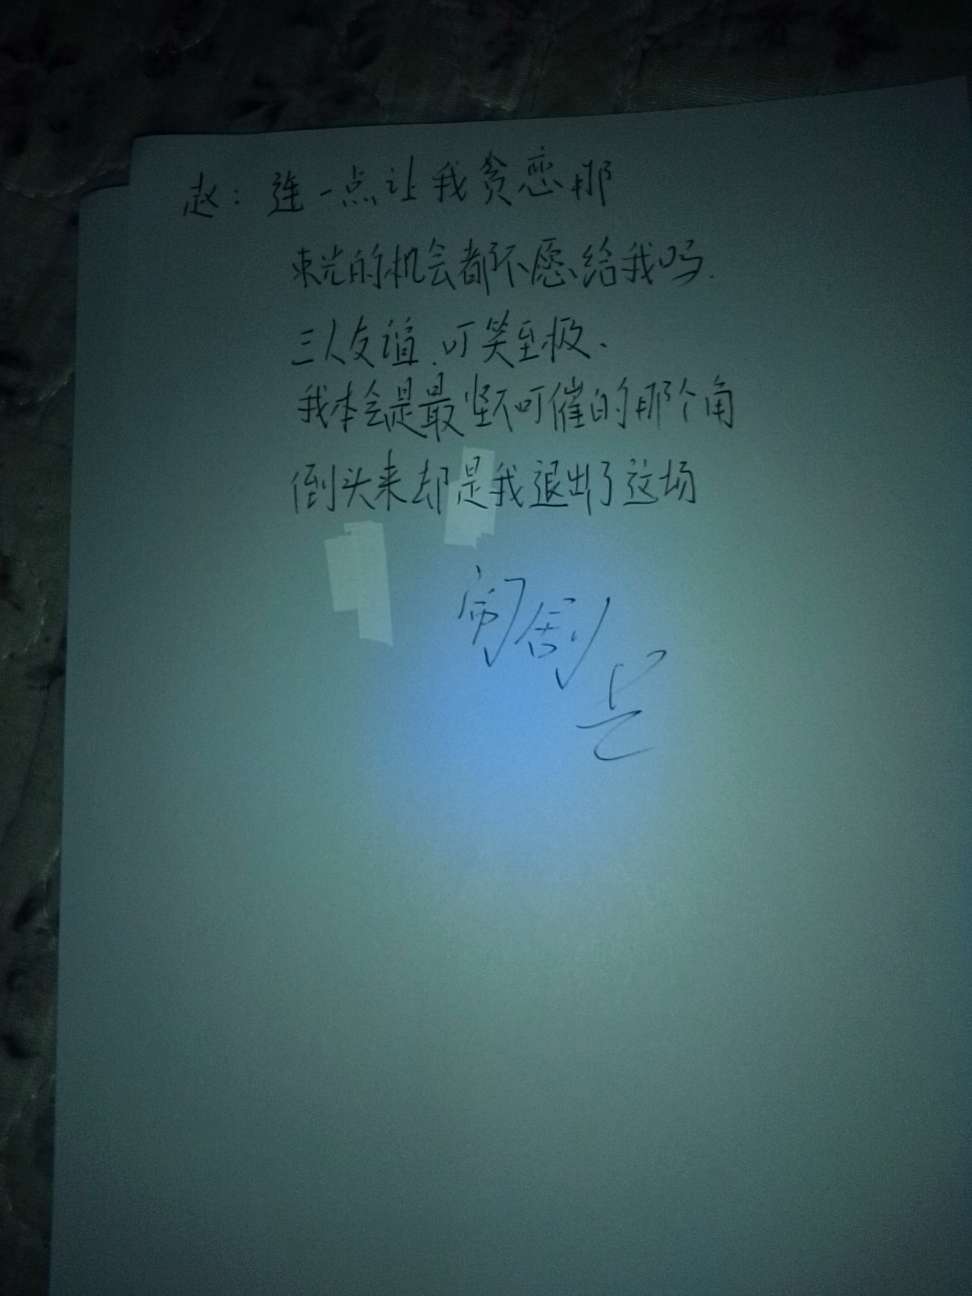 赵：连一点让我贪恋那
束光的机会都不愿给我吗.
三人友谊.可笑至极、
我本会是最坚不可催的那个角
倒头来却是我退出了这场